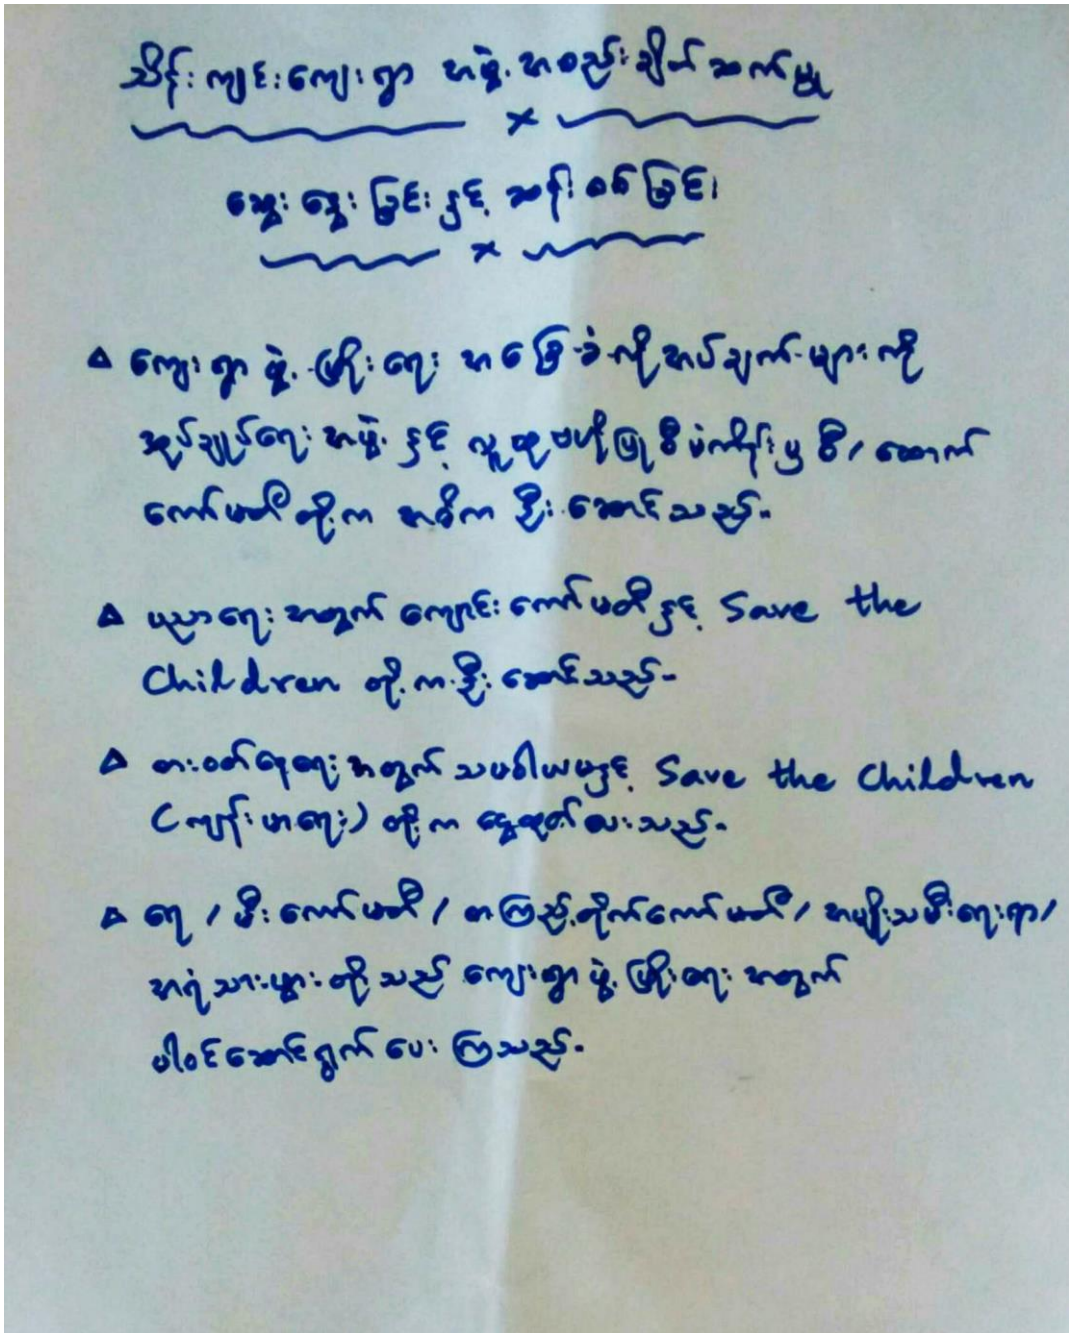 သိန်းကျင်းကျေးရွာ အဖွဲ့အစည်းချိတ်ဆက်မှု
ဆွေးနွေးခြင်းနှင့် ဆန်းစစ်ခြင်း
ကျေးရွာဖွံ့ဖြိုးရေး အခြေခံလိုအပ်ချက်များကို
အုပ်ချုပ်ရေးအဖွဲ့နှင့် လူထုဗဟိုပြုစီမံကိန်းမှ စီ/ထောက်
ကော်မတီတို့က အဓိက ဦးဆောင်သည်။
ပညာရေးအတွက် ကျောင်းကော်မတီနှင့် Save the
Children တို့က ဦးဆောင်သည်။
စားဝတ်နေရေးအတွက် သမဝါယမနှင့် Save the Children
(ကျန်းမာရေး) တို့က ငွေထုတ်ပေးသည်။
ရေ / မီးကော်မတီ / စာကြည့်တိုက်ကော်မတီ / အမျိုးသမီးရေးရာ /
အရံသားဖွားတို့သည် ကျေးရွာဖွံ့ဖြိုးရေးအတွက်
ပါဝင်ဆောင်ရွက်ပေးကြသည်။